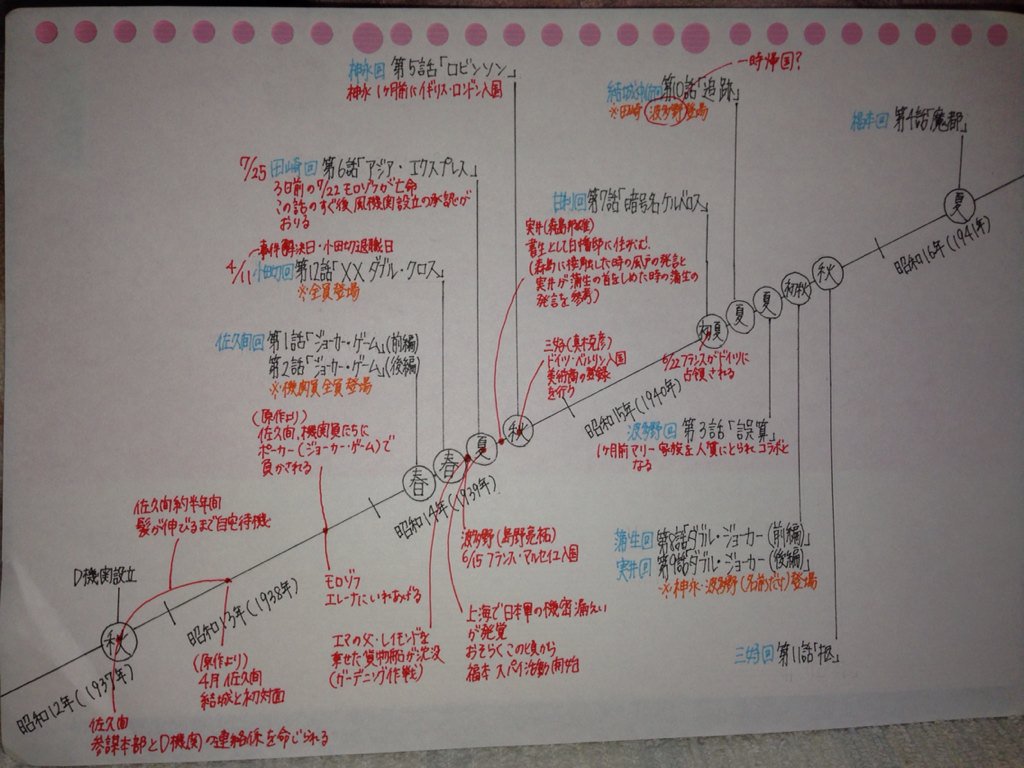 神永回 第5話「ロビンソン」
神永 1ヶ月前にイギリス・ロンドン入国
一時帰国?
結城中佐回 第10話「追跡」
※田崎 波多野登場
福本回 第4話「魔都」
7/25 田崎回 第6話「アジア・エクスプレス」
3日前の7/22 モロゾフが亡命
この話のすぐ後、風機関設立の承認が
おりる
甘利回 第7話「暗号名ケルベロス」
実井(森島邦雄)
書生として白幡邸に住みこむ。
(森島に接触した時の風戸の発言と
実井が蒲生の首をしめた時の蒲生の
発言を参考)
事件解決日・小田切退職日
4/11 小田切回 第12話「XX ダブル・クロス」
※全員登場
佐久間回 第1話「ジョーカー・ゲーム」(前編)
第2話「ジョーカー・ゲーム」(後編)
※機関員全員登場
三好(真木克彦)
ドイツ・ベルリン入国
美術商の登録
を行う
(原作より)
佐久間、機関員たちに
ポーカー(ジョーカー・ゲーム)で
負かされる
夏
秋
初秋
夏
夏
初夏
6/22 フランスがドイツに
占領される
昭和16年(1941年)
昭和15年(1940年)
秋
夏
春
春
昭和14年(1939年)
波多野回 第3話「誤算」
1ヶ月前マリー 家族を人質にとられコラボと
なる
佐久間約半年間
髪が伸びるまで自宅待機
D機関設立
秋
昭和13年(1938年)
昭和12年(1937年)
モロゾフ
エレーナにいれあげる
波多野(島野亮祐)
6/15 フランス・マルセイユ入国
エマの父・レイモンドを
乗せた貨物船が沈没
(ガーデニング作戦)
上海で日本軍の機密漏えい
が発覚
おそらくこの頃から
福本 スパイ活動開始
蒲生回 第8話「ダブル・ジョーカー(前編)」
実井回 第9話「ダブル・ジョーカー(後編)」
※神永・波多野(名前だけ)登場
三好回 第11話「柩」
(原作より)
4月 佐久間
結城と初対面
佐久間
参謀本部とD機関の連絡係を命じられる